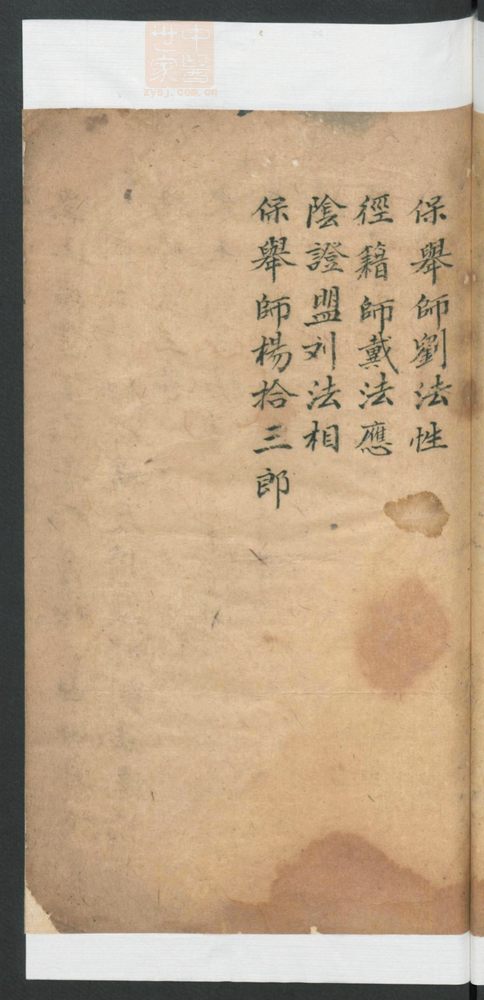 保舉師劉法性
徑籍師戴法應
陰證盟刘法相
保舉師楊拾三郎
中醫世家
zysj.com.cn